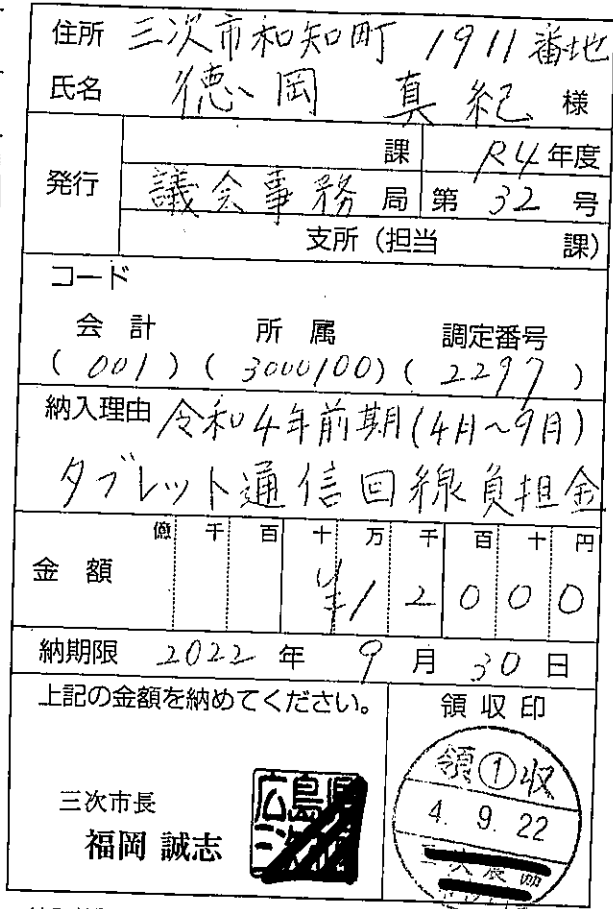 住所 三次市和知町 1911番地
氏名 徳岡 真紀 様
発行
課 R4年度
議会事務局 第 32 号
支所(担当 課)
コード
会計 所属 調定番号
(001)(3000100)(2297)
納入理由 令和4年前期(4月~9月)
タブレット通信回線負担金
億 千 百 十 万 千 百 十 円
金額 ¥12000
納期限 2022年 9月 30日
上記の金額を納めてください。
領収印
三次市長
福岡 誠志
広島県
領①収
4. 9. 22